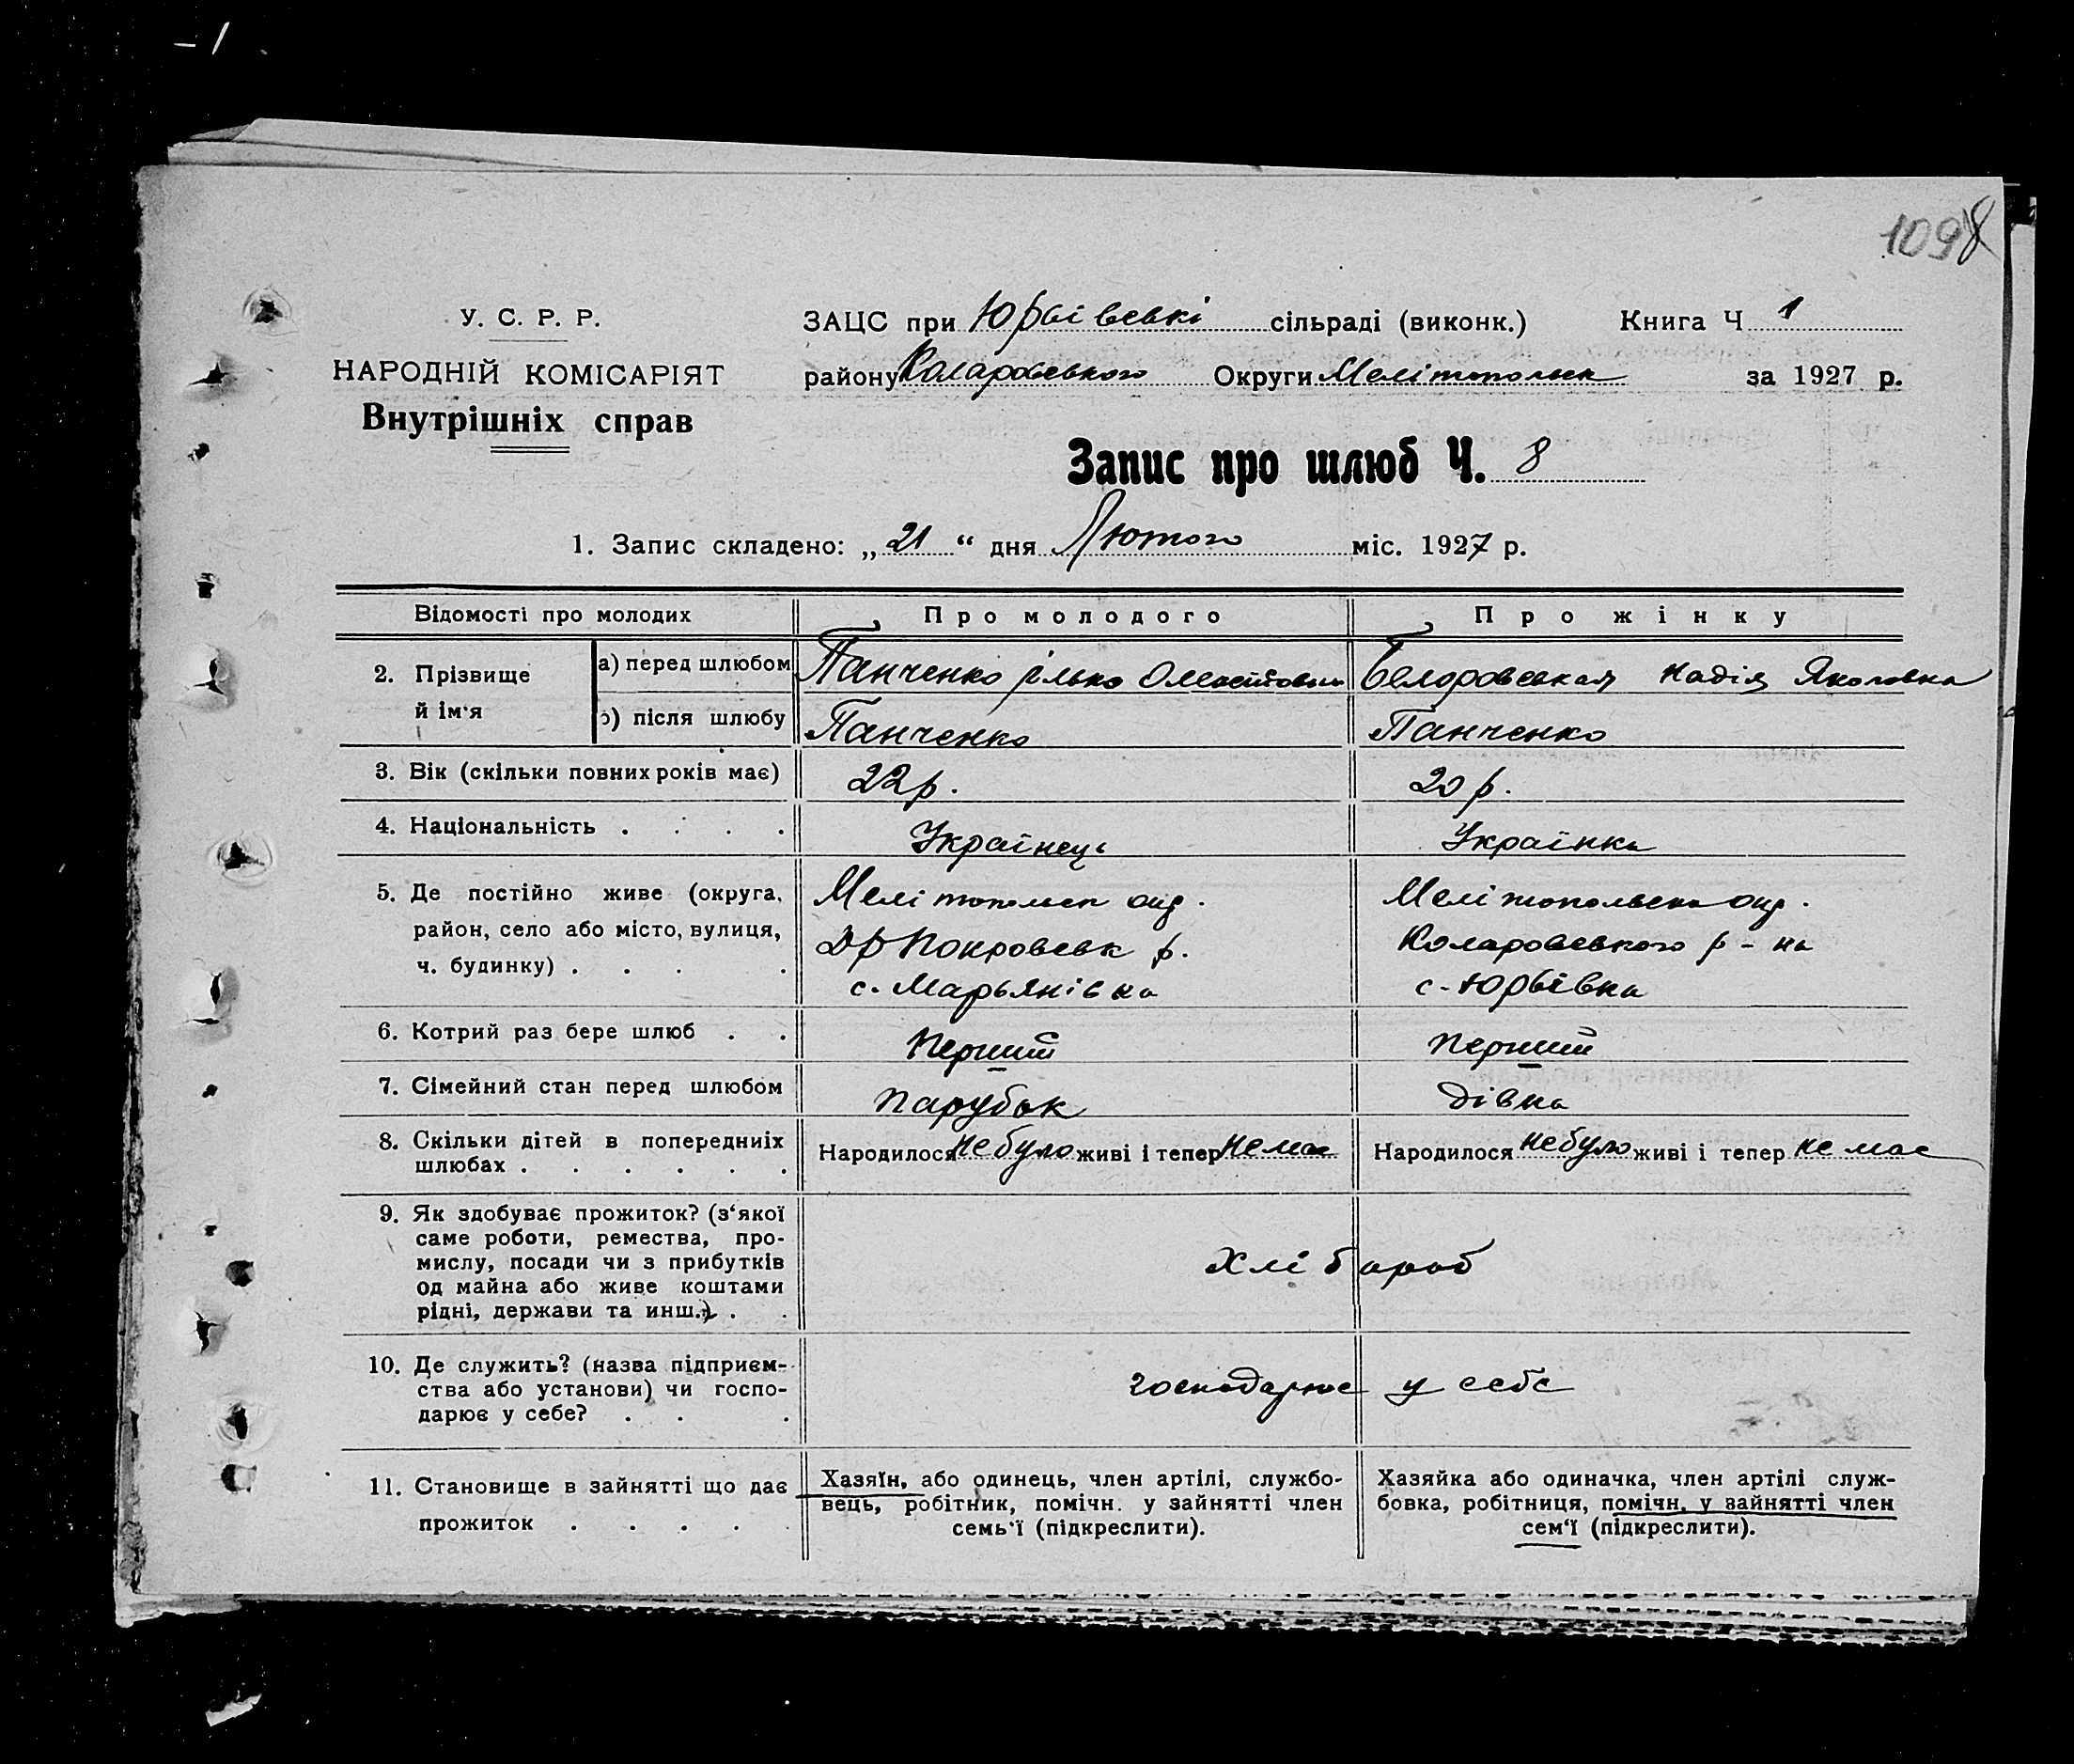 1098
У. С. Р. Р.
НАРОДНІЙ КОМІСАРІЯТ
Внутрішніх справ
ЗАЦС при Юрьївські сільраді (виконк.) Книга Ч 1
району Коларовського Округи Мелітопольск за 1927 р.
Запис про шлюб Ч. 8
1. Запис складено: „21“ дня Лютого міс. 1927 р.
Відомості про молодих Про молодого Про жінку
2. Прізвище й ім'я
а) перед шлюбом Панченко Ілько Надія Якововна
б) після шлюбу Панченко Панченко
3. Вік (скільки повних років має) 22 р. 20 р.
4. Національність . . . . Українець Українка
5. Де постійно живе (округа, Мелітопольск окр. Мелітопольска окр.
район, село або місто, вулиця, Др Покровськ р. Коларовського р-на
ч. будинку) . . . . с. Марьянівка с. Юрьївка
6. Котрий раз бере шлюб . . Перший Перший
7. Сімейний стан перед шлюбом Парубок Дівка
8. Скільки дітей в попередниіх Народилося не було живі і тепер не має Народилося не було живі і тепер не має
шлюбах . . . . . .
9. Як здобуває прожиток? (з‘якої
саме роботи, ремества, про-
мислу, посади чи з прибутків Хлібороб
од майна або живе коштами
рідні, держави та инш.) . .
10. Де служить? (назва підприєм-
ства або установи) чи госпо- господарює у себе
дарює у себе? . . .
11. Становище в зайнятті що дає Хазяїн, або одинець, член артілі, службо- Хазяйка або одиначка, член артілі служ-
вець, робітник, помічн. у зайнятті член бовка, робітниця, помічн. у зайнятті член
прожиток . . . . . семь‘ї (підкреслити). сем‘ї (підкреслити).